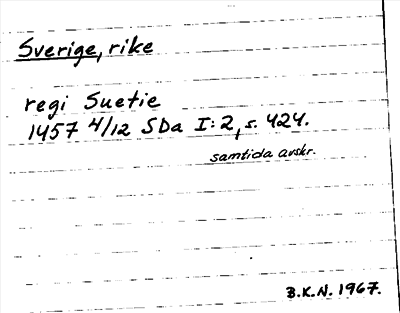 Sverige, rike
regi Suetie
1457 4/12 SDa I:2, s. 424.
samtida avskr.
B.K.N. 1967.